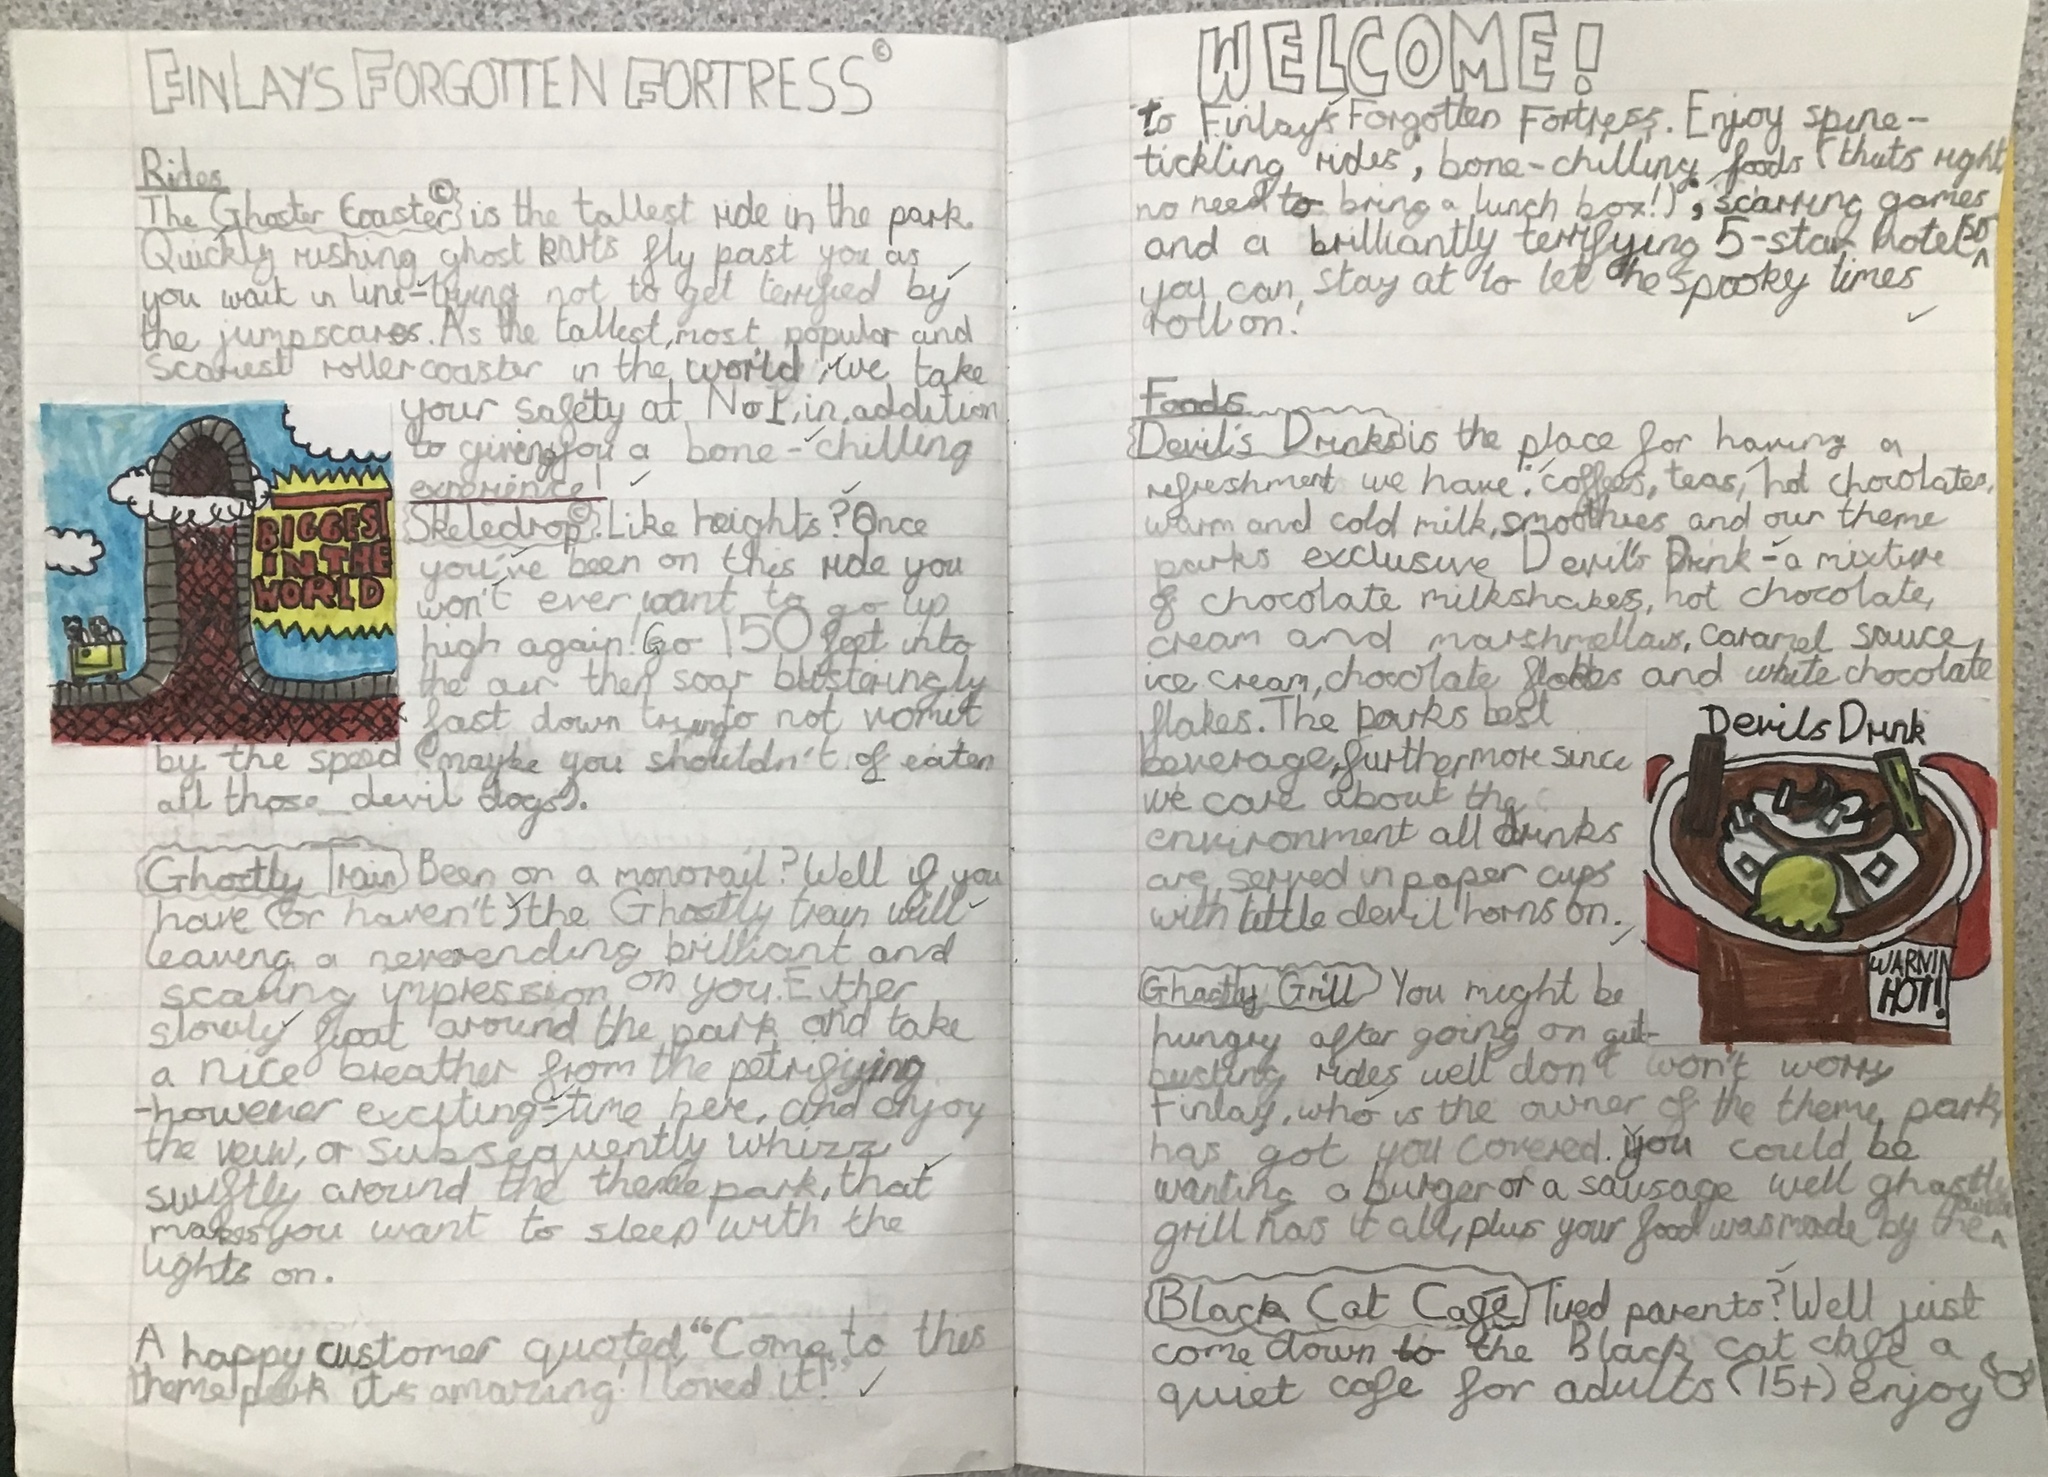 FINLAY'S FORGOTTEN FORTRESS©
Rides
The Ghoster Coaster© is the tallest ride in the park.
Quickly rushing ghost karts fly past you as
you wait in line-trying not to get terrified by
the jumpscares. As the tallest, most popular and
scariest rollercoaster in the world, we take
your safety at No1, in addition
to giving you a bone-chilling
experience!
Skeledrop© Like heights? Once
you've been on this ride you
won't ever want to go up
high again! Go 150 feet into
the air then soar blisteringly
fast down trying to not vomit
by the speed (maybe you shouldn't of eaten
all those devil dogs).
Ghostly Train Been on a monorail? Well if you
have (or haven't) the Ghostly train will
leaving a neverending brilliant and
scaring impression on you. Either
slowly float around the park and take
a nice breather from the petrifiying
-however exciting-time here, and enjoy
the veiw, or subsequently whizz
swiftly around the theme park, that
makes you want to sleep with the
lights on.
A happy customer quoted, "Come to this
theme park it's amazing! I loved it!"
BIGGEST
IN THE
WORLD
WELCOME!
to Finlay's Forgotten Fortress. Enjoy spine-
tickling rides, bone-chilling foods (thats right
no need to bring a lunch box!), scarring games
and a brilliantly terrifying 5-star hotel so
you can stay at to let the spooky times
roll on!
Foods
Devil's Drinks is the place for having a
refreshment we have: coffees, teas, hot chocolates,
warm and cold milk, smoothies and our theme
parks exclusive Devil's Drink - a mixture
of chocolate milkshakes, hot chocolate,
cream and marshmellows, caramel sauce,
ice cream, chocolate flakes and white chocolate
flakes. The parks best
beverage, furthermore since
we care about the
environment all drinks
are served in paper cups
with little devil horns on.
Devils Drink
WARNIN
HOT!
Ghastly Grill You might be
hungry after going on gut-
busting rides well don't won't worry
Finlay, who is the owner of the theme park,
has got you covered. You could be
wanting a burger or a sausage well ghastly
grill has it all, plus your food was made by the
Black Cat Cafe Tired parents? Well just
come down to the Black cat cafe a
quiet cafe for adults (15+) enjoy